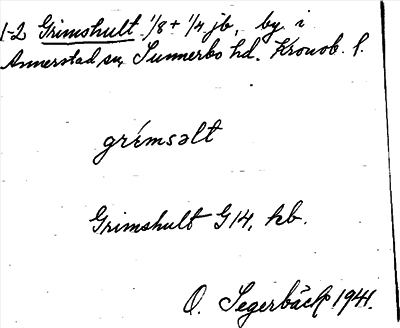 1-2 Grimshult 1/8 + 1/4 jb, by i
Annerstad sn, Sunnerbo hd. Kronob. l.
grémsəlt
Grimshult G14, kb.
O. Segerbäck 1941.